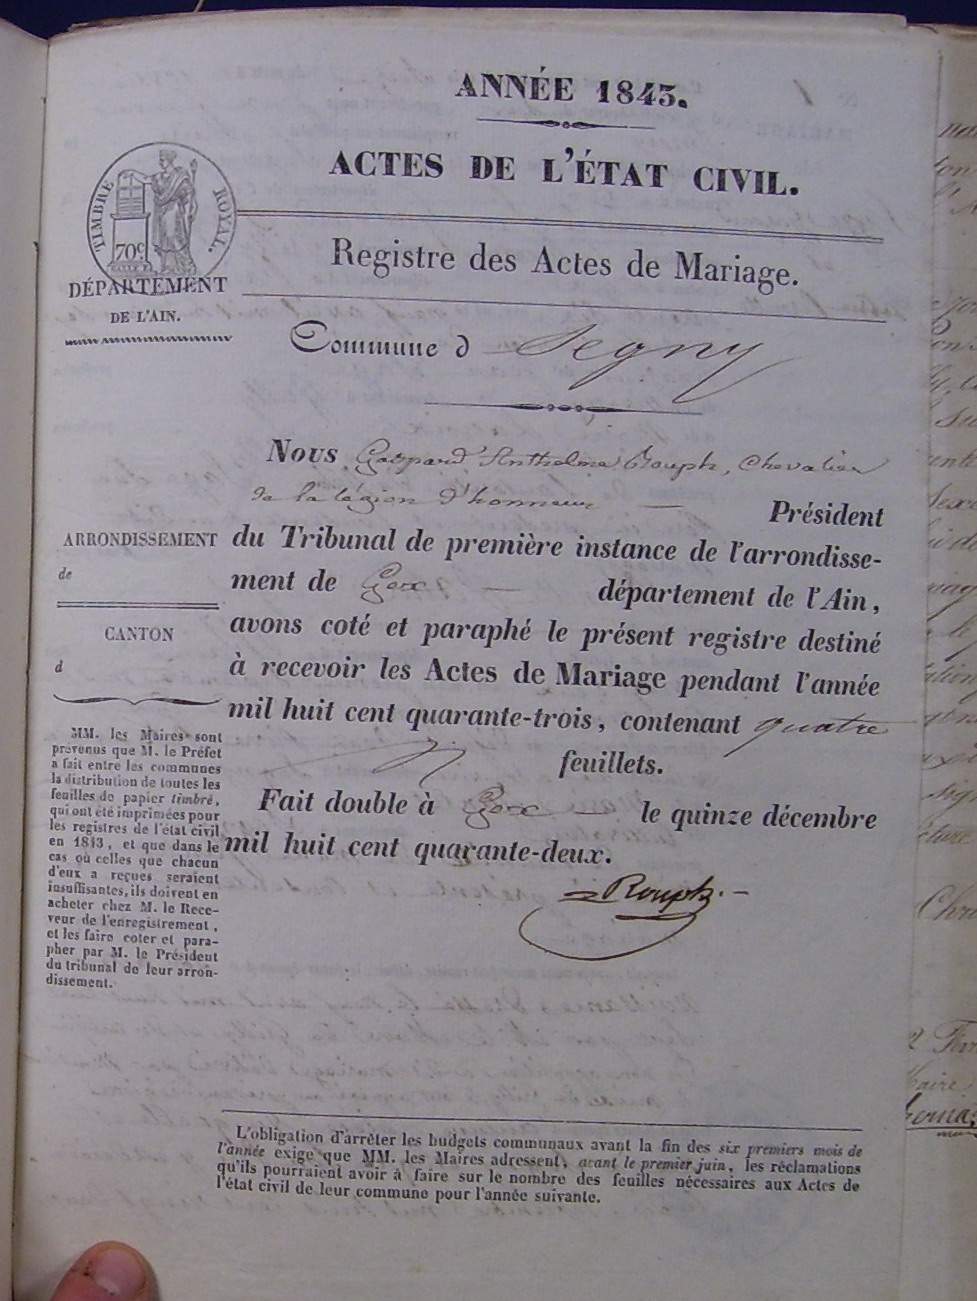 ANNÉE 1843.
ACTES DE L'ÉTAT CIVIL.
TIMBRE ROYAL.
70c
DÉPARTEMENT
DE L'AIN.
Registre des Actes de Mariage.
Commune d Segny
Nous Gaspard Anthelme Rouph, Chevalier
de la légion d'honneur Président
du Tribunal de première instance de l'arrondisse-
ment de Gex département de l'Ain,
avons coté et paraphé le présent registre destiné
à recevoir les Actes de Mariage pendant l'année
mil huit cent quarante-trois, contenant quatre
feuillets.
Fait double à Gex le quinze décembre
mil huit cent quarante-deux.
Rouph
ARRONDISSEMENT
de
CANTON
d
MM. les Maires sont
prévenus que M. le Préfet
a fait entre les communes
la distribution de toutes les
feuilles de papier timbré,
qui ont été imprimées pour
les registres de l'état civil
en 1843, et que dans le
cas où celles que chacun
d'eux a reçues seraient
insuffisantes, ils doivent en
acheter chez M. le Rece-
veur de l'enregistrement,
et les faire coter et para-
pher par M. le Président
du tribunal de leur arron-
dissement.
L'obligation d'arrêter les budgets communaux avant la fin des six premiers mois de
l'année exige que MM. les Maires adressent, avant le premier juin, les réclamations
qu'ils pourraient avoir à faire sur le nombre des feuilles nécessaires aux Actes de
l'état civil de leur commune pour l'année suivante.